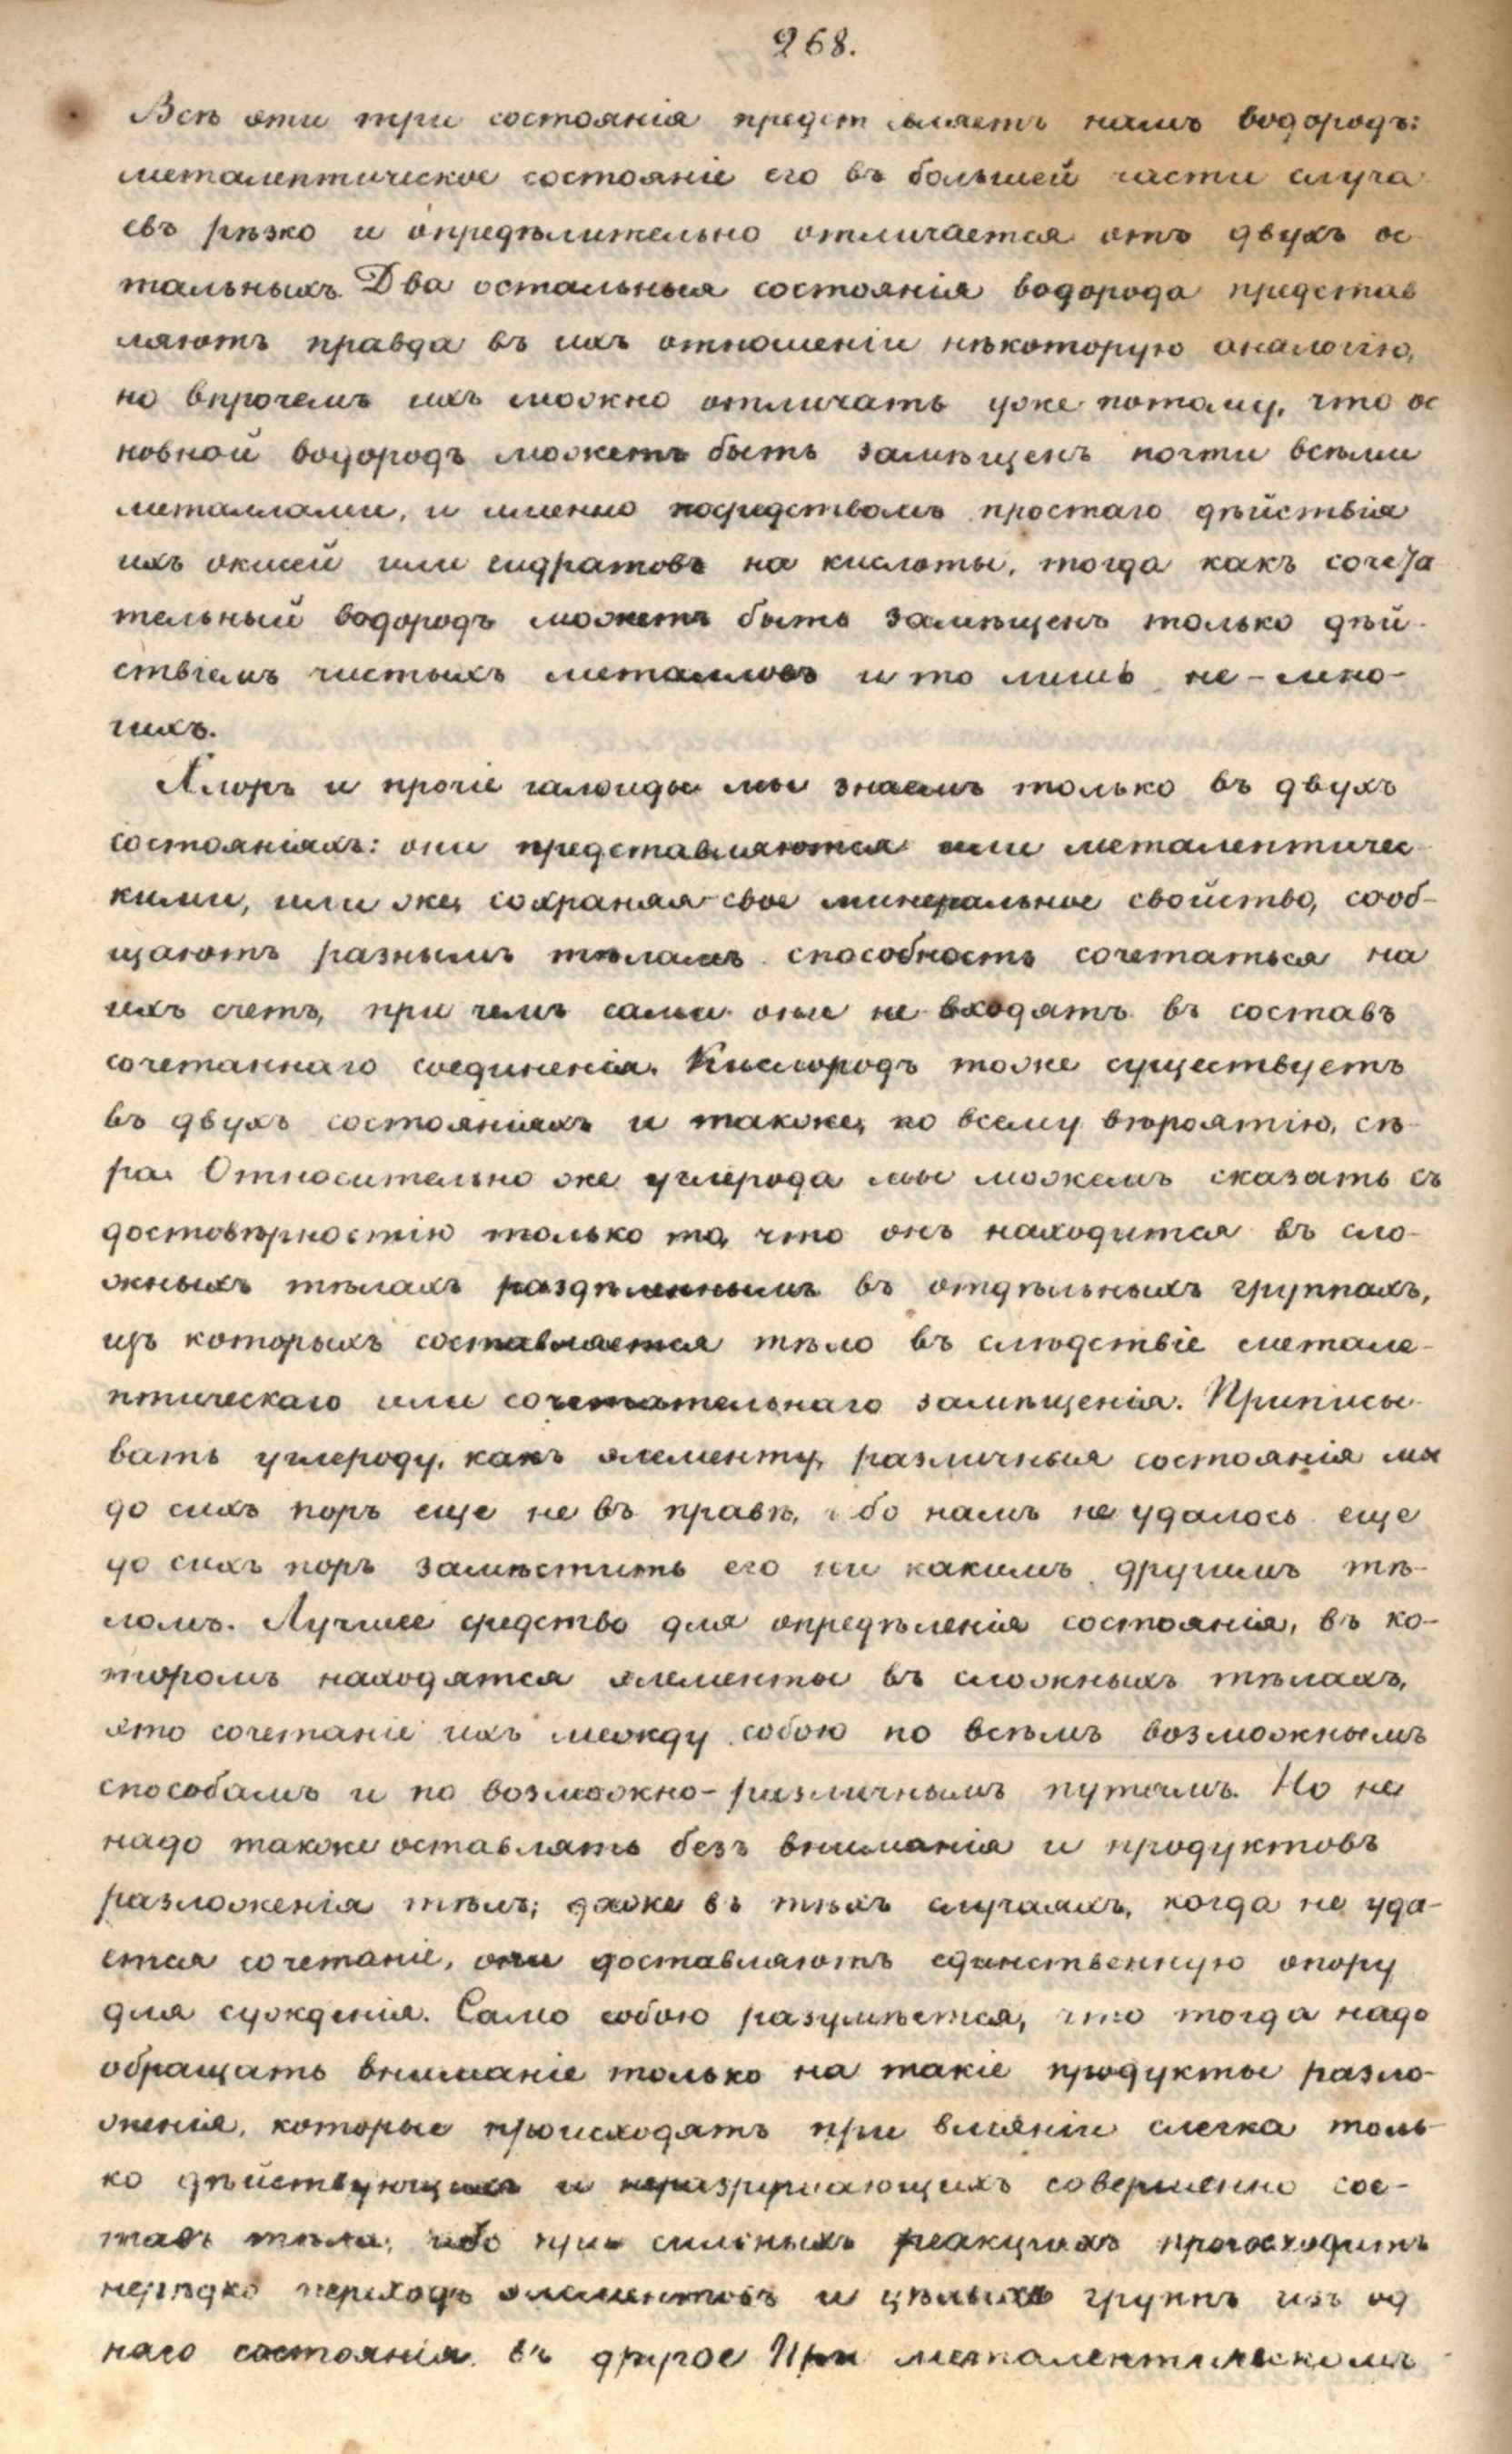 268.
Всѣ эти три состоянія представляетъ намъ водородъ:
металептическое состояніе его въ большей части случа
евъ рѣзко и опредѣлительно отличается отъ двухъ ос
тальныхъ. Два остальныя состоянія водорода представ
ляютъ правда въ ихъ отношеніи нѣкоторую аналогію,
но впрочемъ ихъ можно отличать уже потому, что ос
новной водородъ можетъ быть замѣщенъ почти всѣми
металлами, и именно посредствомъ простаго дѣйствія
ихъ окисей или гидратовъ на кислоты, тогда какъ сочета
тельный водородъ можетъ быть замѣщенъ только дѣй-
ствіемъ чистыхъ металловъ и то лишь не-мно-
гихъ.
Хлоръ и прочіе галоиды мы знаемъ только въ двухъ
состояніяхъ: они представляются или металептичес-
кими, или же, сохраняя свое минеральное свойство, сооб-
щаютъ разнымъ тѣламъ способность сочетаться на
ихъ счетъ, при чемъ сами они не входятъ въ составъ
сочетаннаго соединенія. Кислородъ тоже существуетъ
въ двухъ состояніяхъ и также, по всему вѣроятію, сѣ-
ра. Относительно же углерода мы можемъ сказать съ
достовѣрностію только то, что онъ находится въ сло-
жныхъ тѣлахъ раздѣленнымъ въ отдѣльныхъ группахъ,
изъ которыхъ составляется тѣло въ слѣдствіе метале-
птическаго или сочетательнаго замѣщенія. Приписы-
вать углероду, какъ элементу, различныя состоянія мы
до сихъ поръ еще не въ правѣ, ибо намъ не удалось еще
до сихъ поръ замѣстить его ни какимъ другимъ тѣ-
ломъ. Лучшее средство для опредѣленія состоянія, въ ко-
торомъ находятся элементы въ сложныхъ тѣлахъ,
это сочетаніе ихъ между собою по всѣмъ возможнымъ
способамъ и по возможно-различнымъ путямъ. Но не
надо также оставлять безъ вниманія и продуктовъ
разложенія тѣлъ; даже въ тѣхъ случаяхъ, когда не уда-
ется сочетаніе, они доставляютъ единственную опору
для сужденія. Само собою разумѣется, что тогда надо
обращать вниманіе только на такіе продукты разло-
женія, которые происходятъ при вліяніи слегка толь-
ко дѣйствующихъ и неразрушающихъ совершенно сос-
тавъ тѣла; ибо при сильныхъ реакціяхъ происходитъ
нерѣдко переходъ элементовъ и цѣлыхъ группъ изъ од
наго состоянія въ другое При металептическомъ